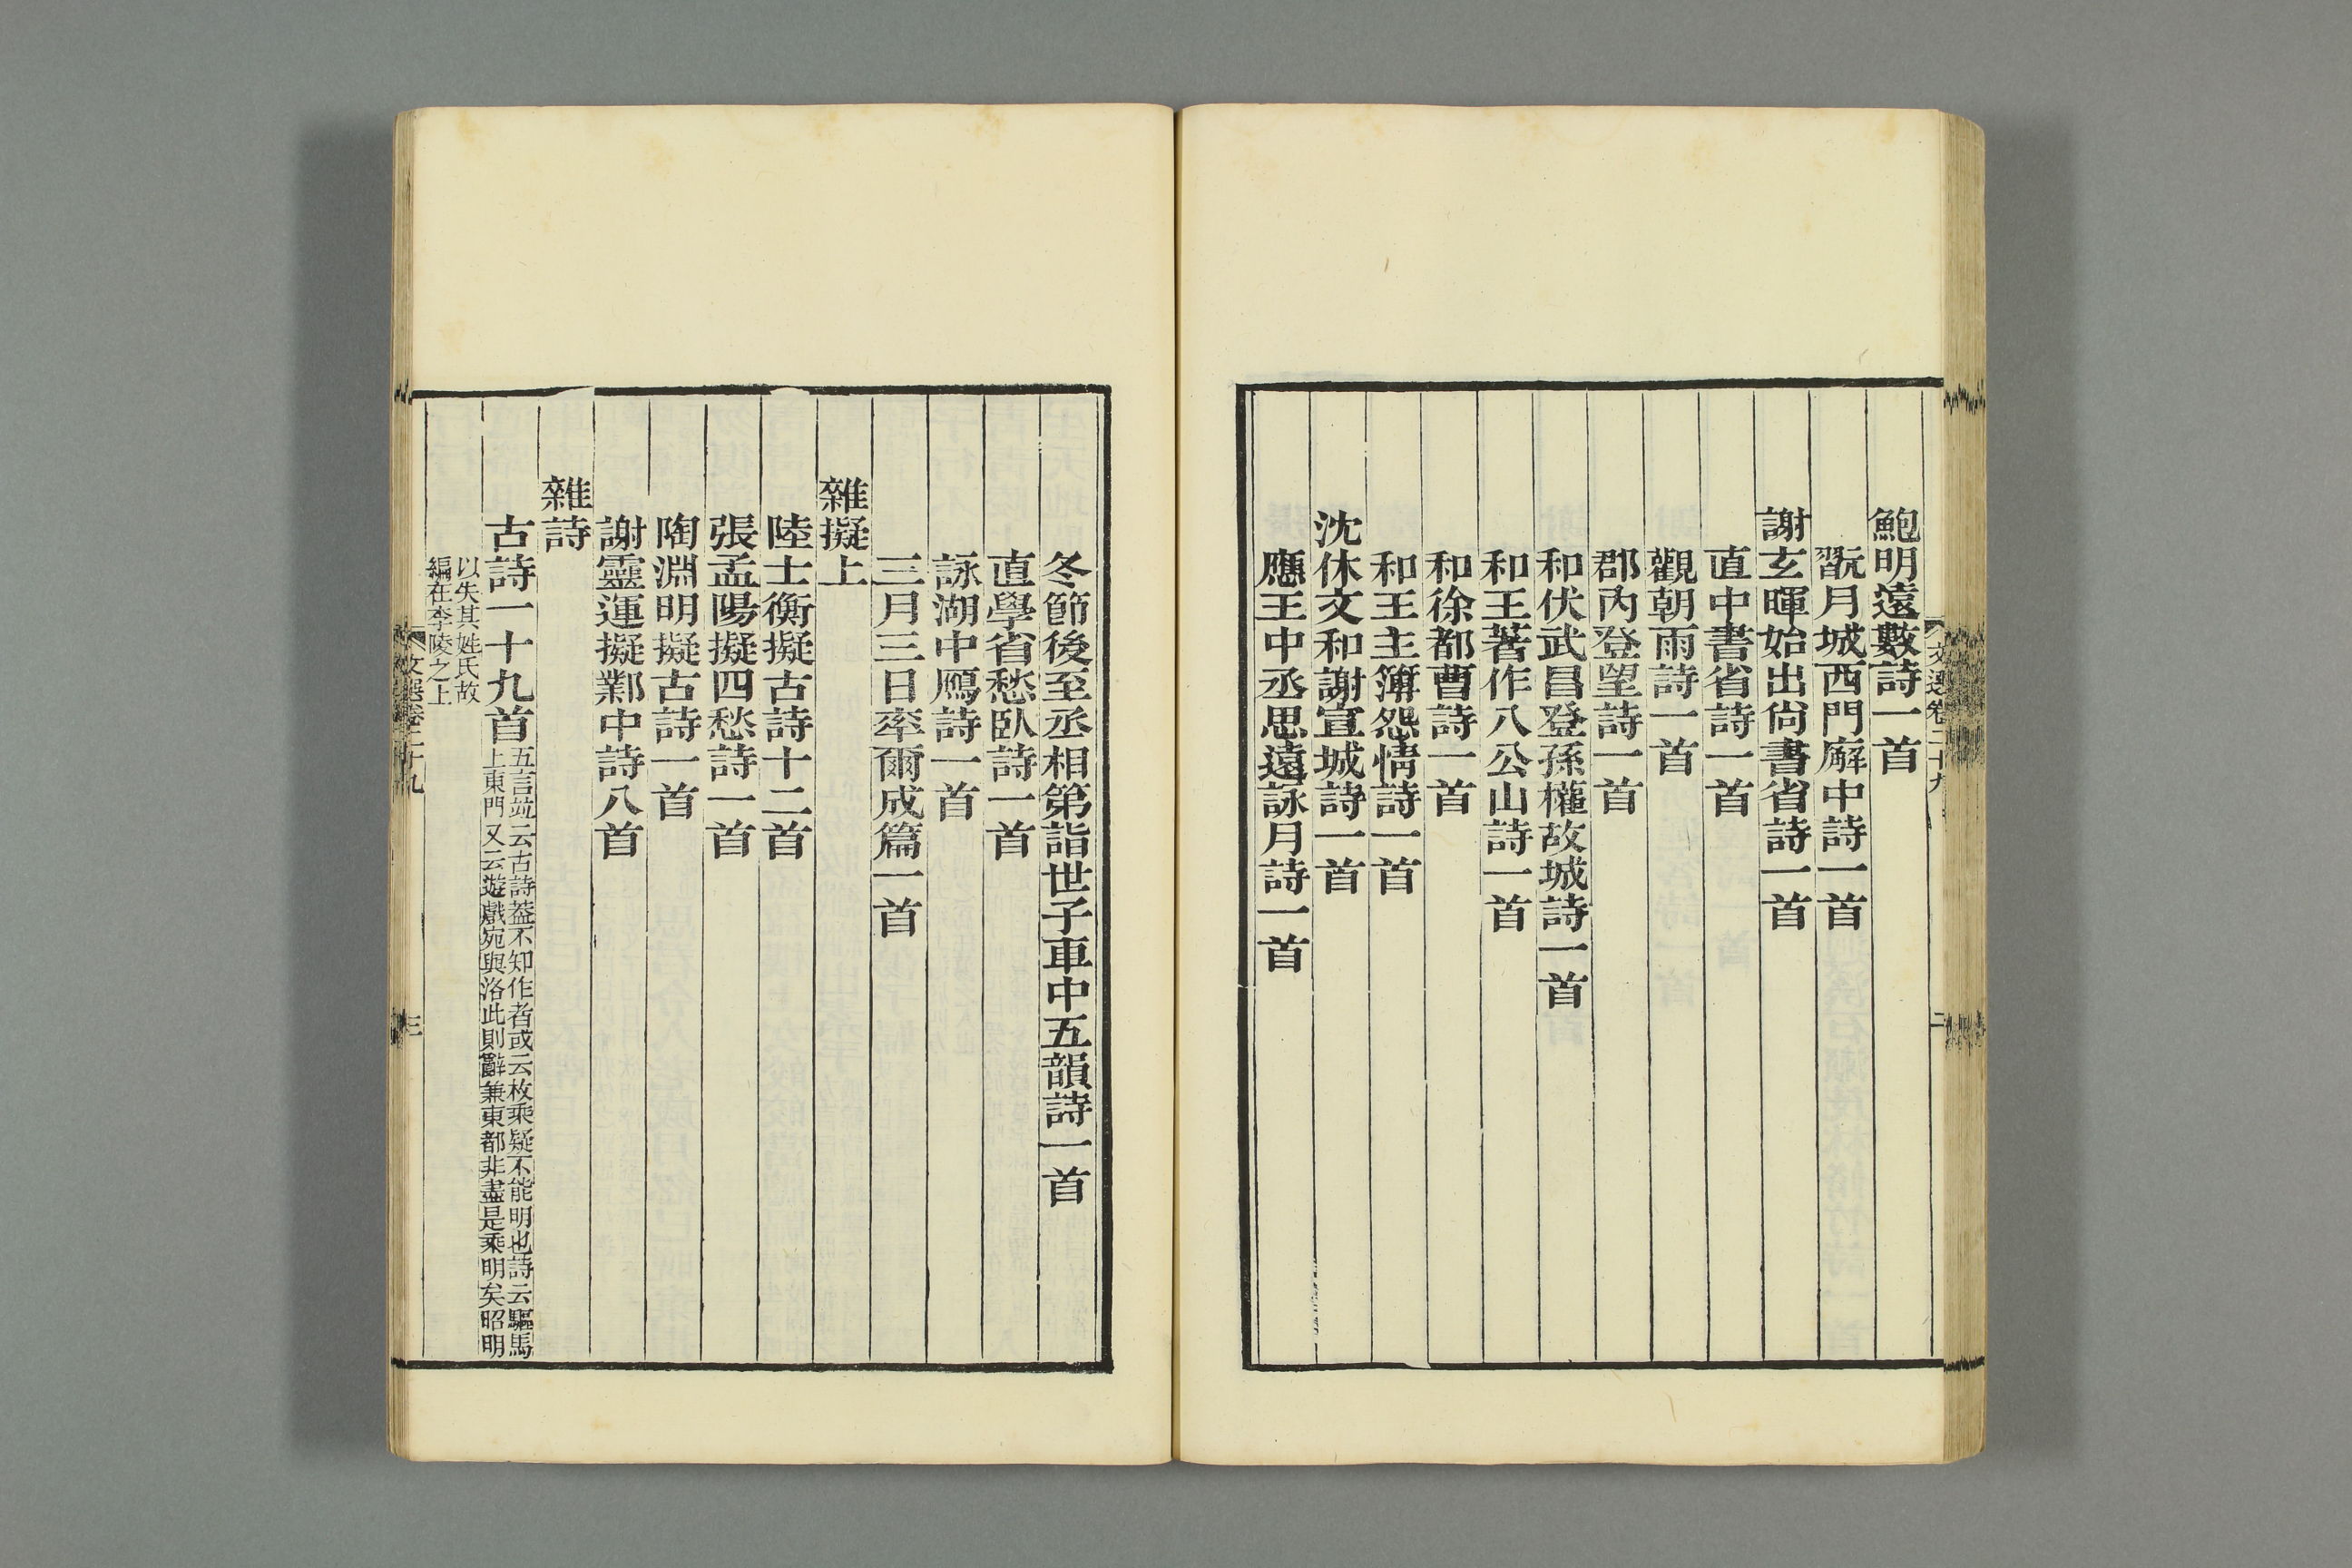 鮑明遠數詩一首
翫月城西門廨中詩一首
謝玄暉始出尚書省詩一首
直中書省詩一首
觀朝雨詩一首
郡內登望詩一首
和伏武昌登孫權故城詩一首
和王著作八公山詩一首
和徐都曹詩一首
和王主簿怨情詩一首
沈休文和謝宣城詩一首
應王中丞思遠詠月詩一首
冬節後至丞相第詣世子車中五韻詩一首
直學省愁臥詩一首
詠湖中鴈詩一首
三月三日率爾成篇一首
雜擬上
陸士衡擬古詩十二首
張孟陽擬四愁詩一首
陶淵明擬古詩一首
謝靈運擬鄴中詩八首
雜詩
古詩一十九首
五言竝云古詩葢不知作者或云枚乘疑不能明也詩云驅馬
上東門又云遊戲宛與洛此則辭兼東都非盡是乘明矣昭明
以失其姓氏故
編在李陵之上
文選卷二十九
三
文選卷二十九
二